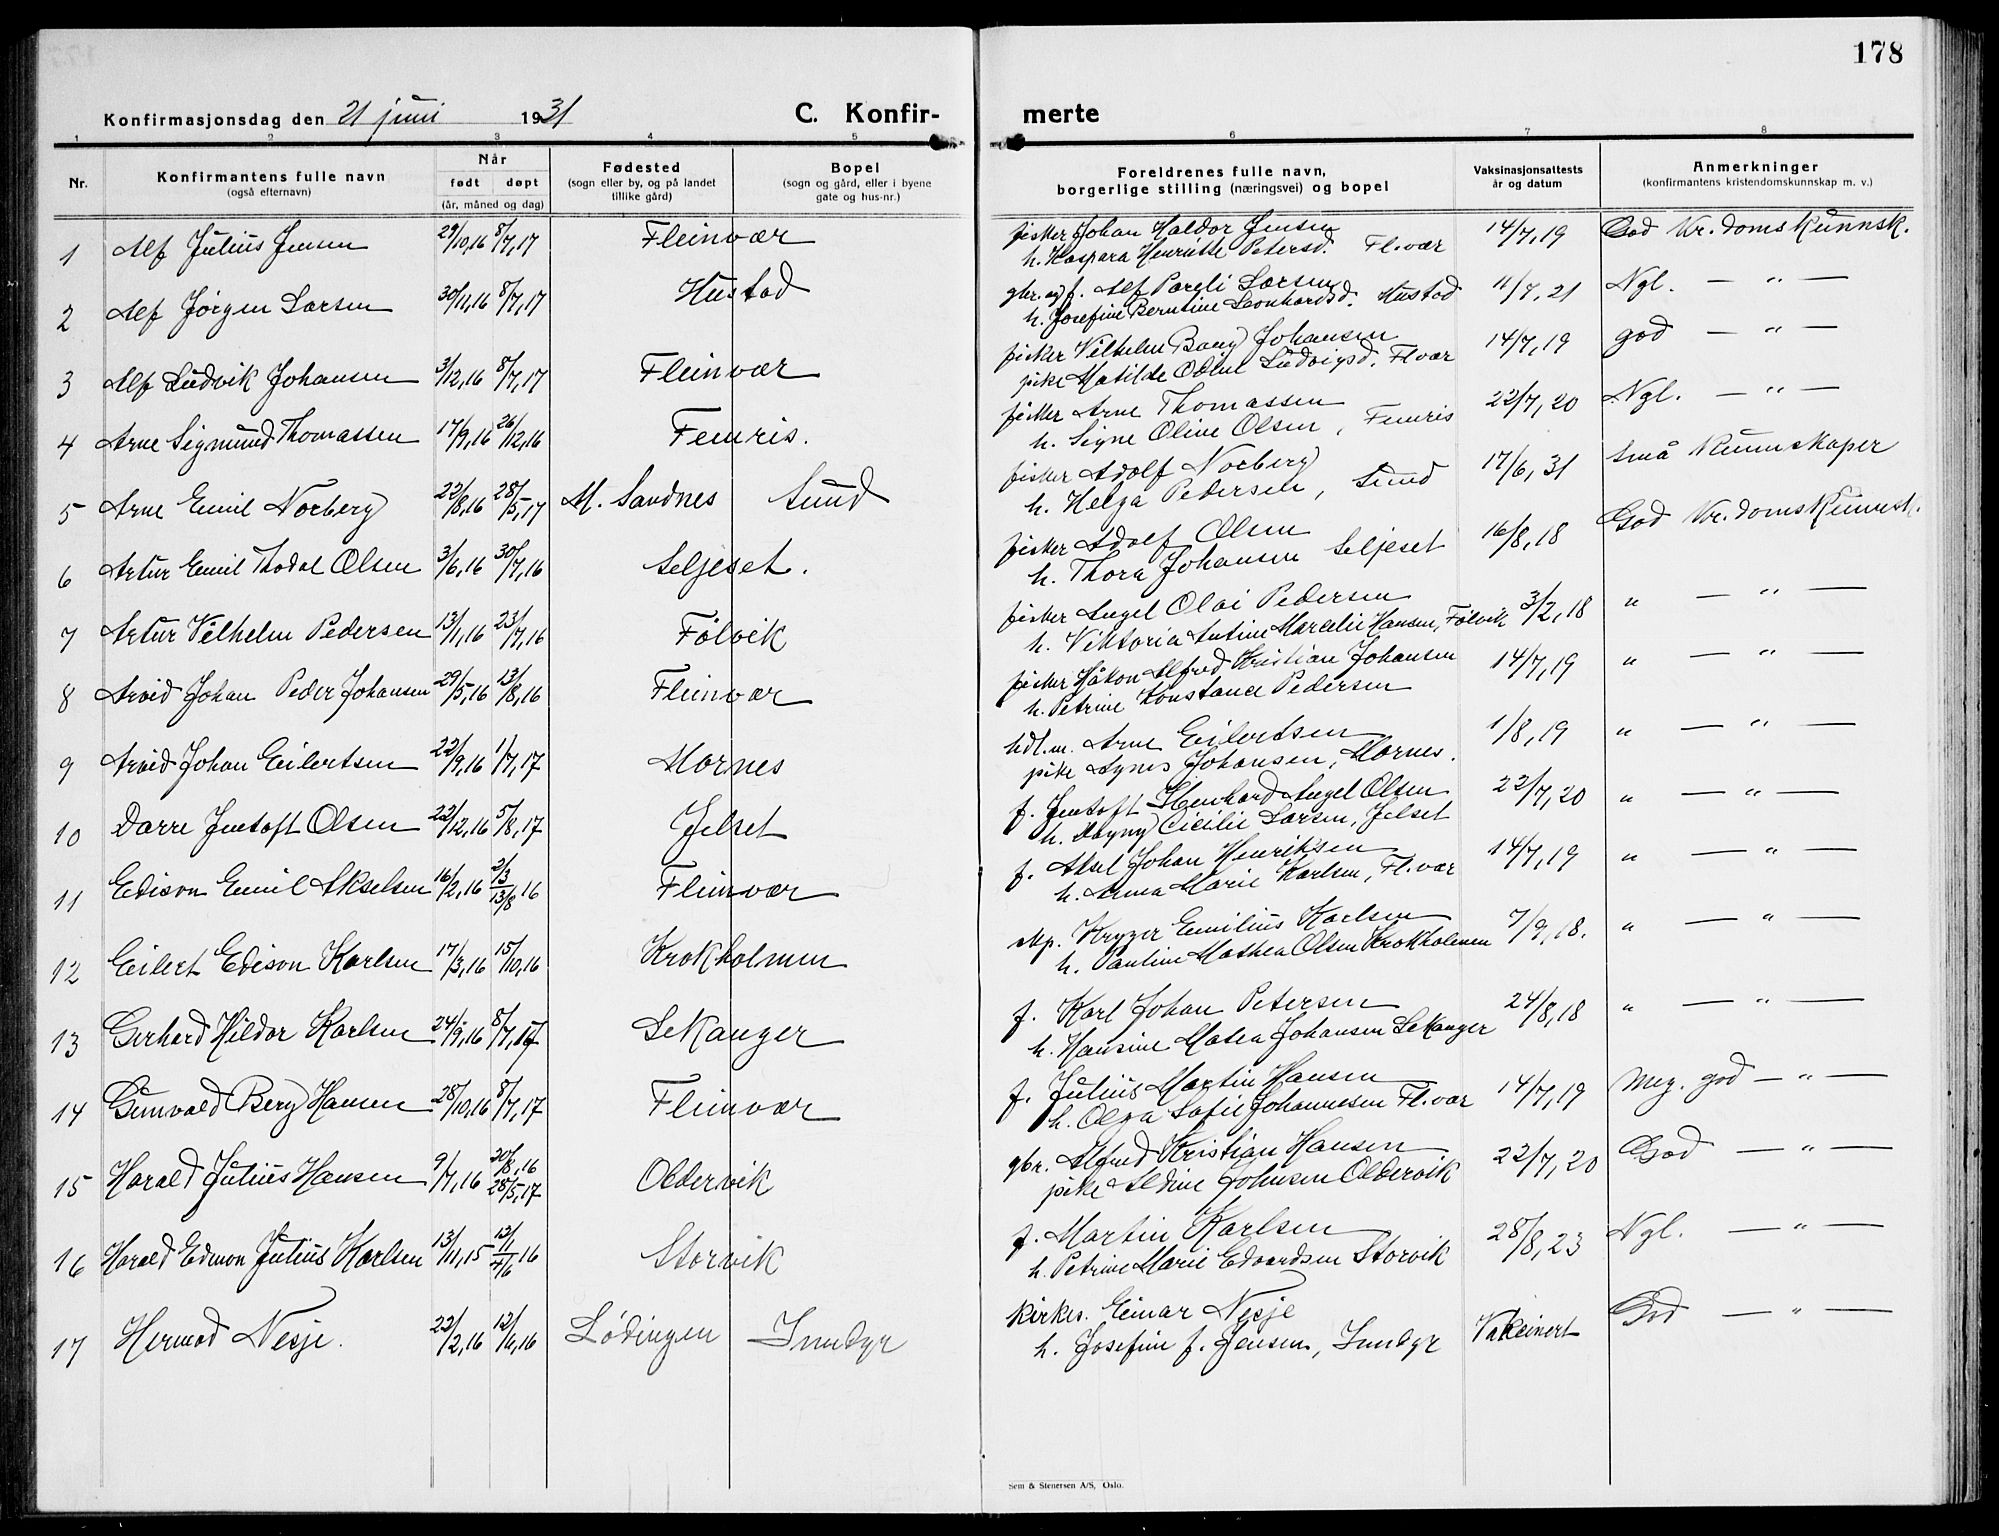 178
Konfirmasjonsdag den 21 juni 1931 C. Konfir- merte
1 2 3 4 5 6 7 8
Nr. Konfirmantens fulle navn (også efternavn) Når født døpt (år, måned og dag) Fødested (sogn eller by, og på landet tillike gård) Bopel (sogn og gård, eller i byene gate og hus-nr.) Foreldrenes fulle navn, borgerlige stilling (næringsvei) og bopel Vaksinasjonsattests år og datum Anmerkninger (konfirmantens kristendomskunnskap m. v.)
1 Alf Julius Jensen 29/10,16 8/7,17 Fleinvær fisker Johan Haldor Jensen 14/7,19 God Kr.domskunnsk.
h. Kaspara Henriette Petersd. Fl.vær
2 Alf Jørgen Larsen 30/11,16 8/7,17 Hustad gbr. og f. Alf Pareli Larsen 11/7,21 Ngl. — " —
h. Josefine Berntine Leonhardsd. Hustad
3 Alf Ludvik Johansen 3/12,16 8/7,17 Fleinvær fisker Vilhelm Bang Johansen 14/7,19 god — " —
pike Matilde Odine Ludvigsd. Fl.vær
4 Arne Sigmund Thomassen 17/9,16 26/12,16 Femris. fisker Arne Thomassen 22/7,20 Ngl. — " —
h. Signe Oline Olsen, Femris
5 Arne Emil Norberg 22/8,16 28/5,17 M. Sandnes Sund fisker Adolf Norberg 17/6,31 små Kunnskaper
h. Helga Pedersen, Sund
6 Artur Emil Thodal Olsen 3/6,16 30/7,16 Seljeset. fisker Adolf Olsen 16/8,18 God Kr.domskunnsk.
h. Thora Johansen Seljeset
7 Artur Vilhelm Pedersen 13/1,16 23/7,16 Følvik fisker Angel Olai Pedersen 3/2,18 " — " —
h. Viktoria Antine Marcelie Hansen, Følvik
8 Arvid Johan Peder Johansen 29/5,16 13/8,16 Fleinvær fisker Håkon Alfred Kristian Johansen 14/7,19 " — " —
h. Petrine Konstance Pedersen
9 Arvid Johan Eilertsen 22/9,16 1/7,17 Mornes hdl.m. Arne Eilertsen 1/8,19 " — " —
pike Agnes Johansen, Mornes.
10 Darre Jentoft Olsen 22/12,16 5/8,17 Jelset f. Jentoft Angel Olsen 22/7,20 " — " —
h. Dagny Cicilie Larsen, Jelset
11 Edison Emil Akselsen 16/2,16 2/3 13/8 16 Fleinvær f. Aksel Johan Henriksen 14/7,19 " — " —
h. Anna Marie Karlsen, Fl.vær
12 Eilert Edison Karlsen 17/3,16 15/10,16 Krokholmen skp. Kryger Emilius Karlsen 7/9,18. " — " —
h. Pauline Mathea Olsen Krokholmen
13 Gerhard Hildor Karlsen 24/9,16 8/7,17 Sekanger f. Karl Johan Petersen 24/8,18 " — " —
h. Hansine Matea Johansen Sekanger
14 Gunvald Berg Hansen 28/10,16 8/7,17 Fleinvær f. Julius Martin Hansen 14/7,19 Meg. god — " —
h. Olga Sofie Johannesen Fl.vær
15 Harald Julius Hansen 9/7,16 20/8,16 28/5,17 Oldervik gbr. Alfred Kristian Hansen 22/7,20 God — " —
pike Aldine Johnsen Oldervik
16 Harald Edmon Julius Karlsen 13/11,15 13/1 4/6 16 Storvik f. Martin Karlsen 28/8,23 Ngl. — " —
h. Petrine Marie Edvardsen Storvik
17 Hermod Nesje. 22/2,16 12/4,16 Lødingen Inndyr kirkes. Einar Nesje Vaksinert God — " —
h. Josefine f. Jensen, Inndyr
Sem & Stenersen A/S, Oslo.